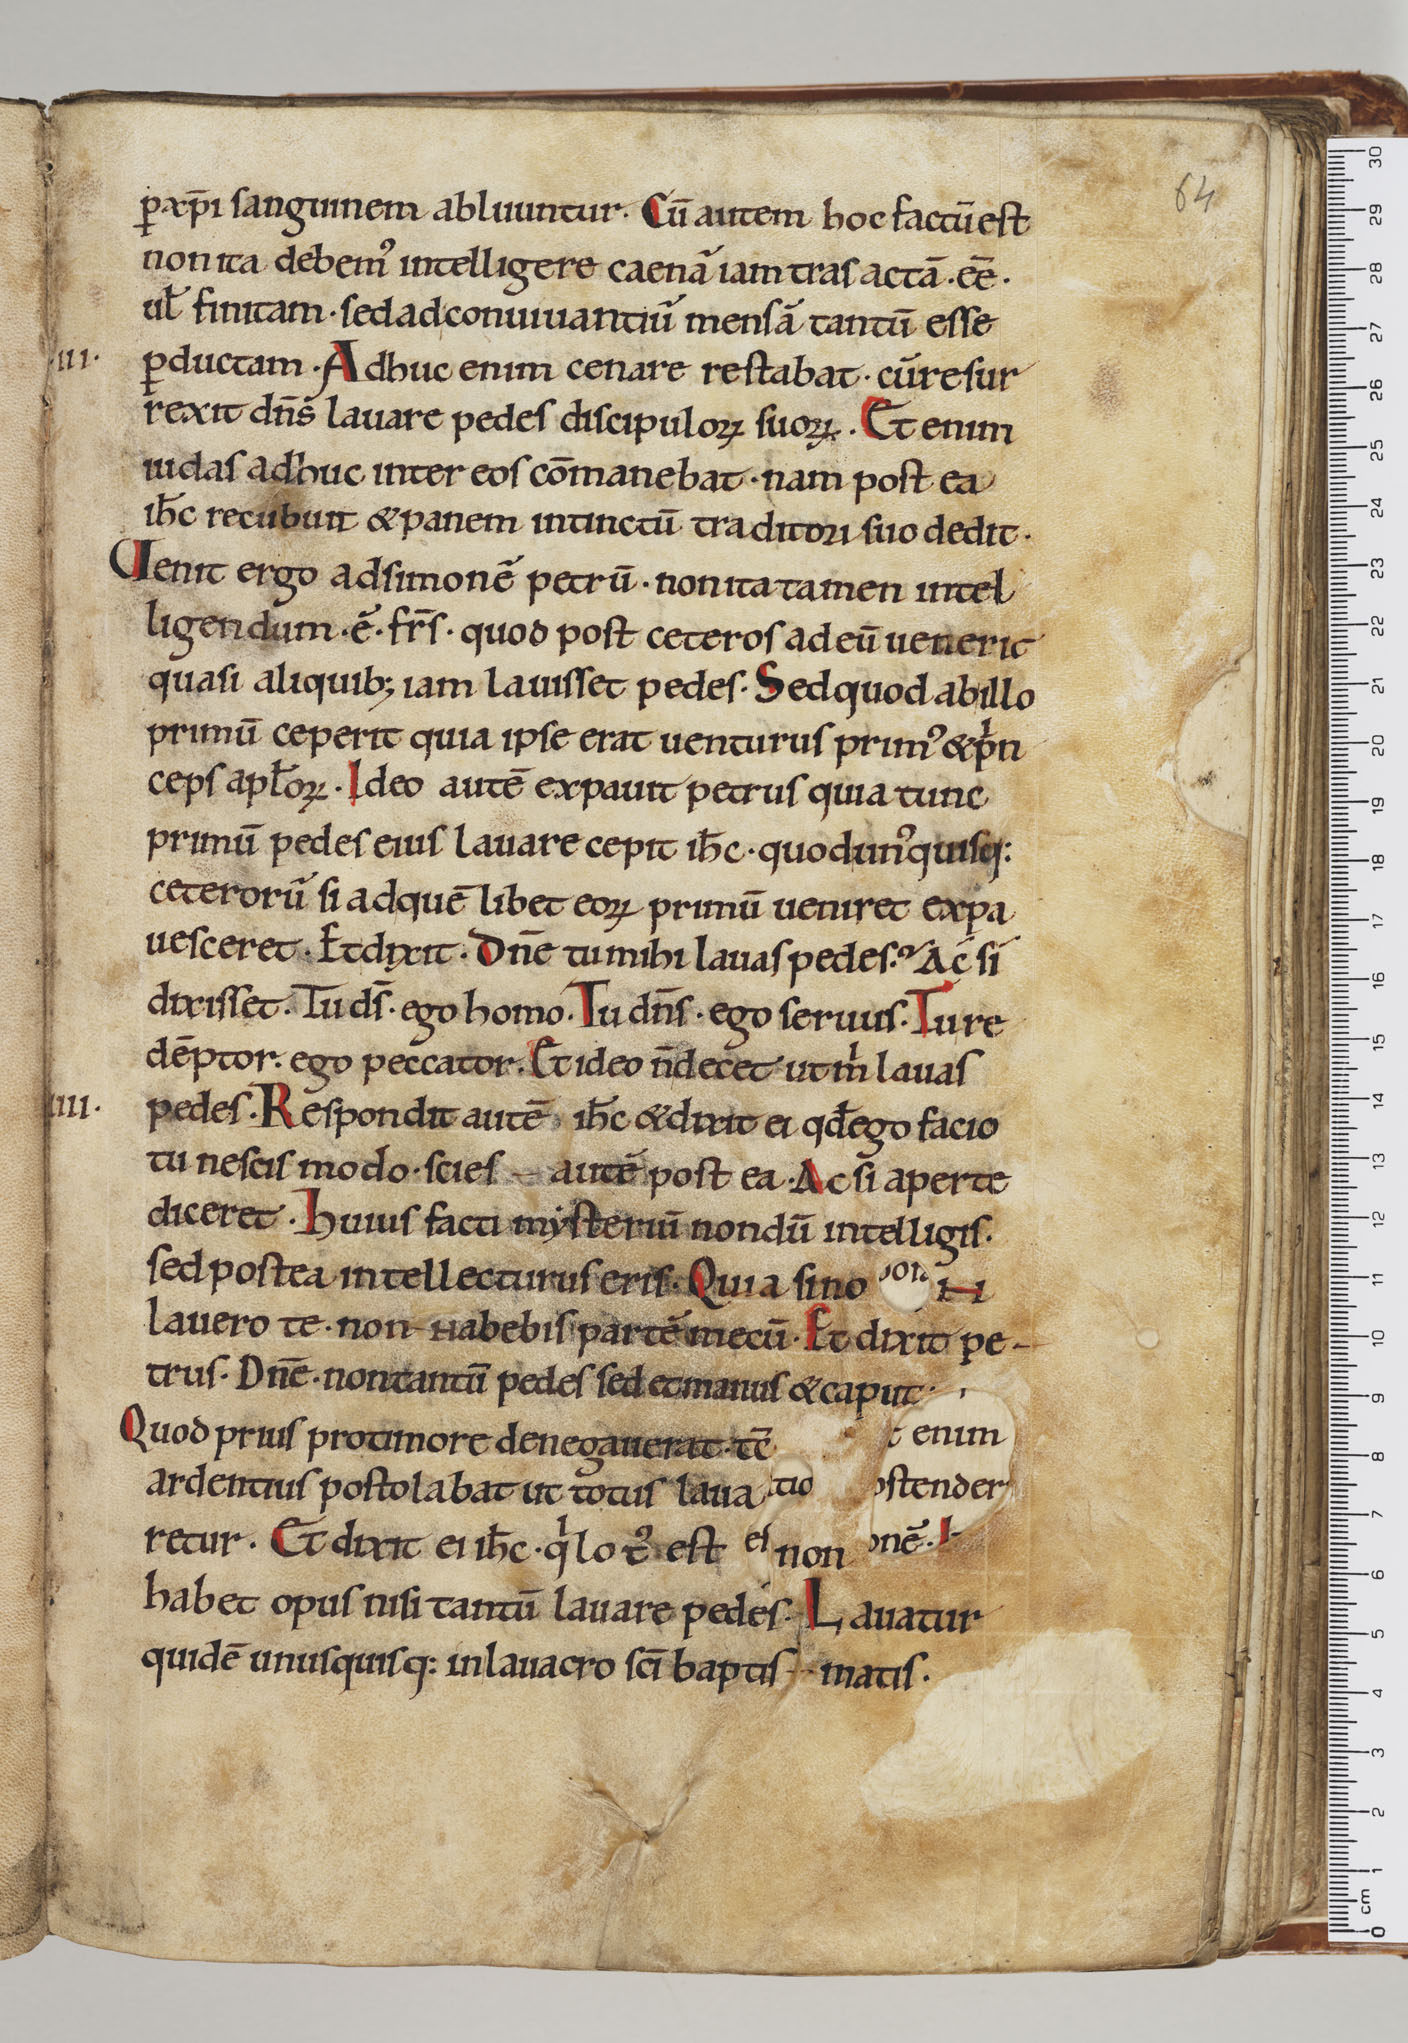 64
ꝑ xp̄i sanguinem abluuntur. Cū autem hoc factū est
non ita debem᷒ intelligere caenā iam trasactā. eē.
ul̄ finitam. sed ad conuiuantiū mensā tantū esse
.III. ꝑductam. Adhuc enim cenare restabat. cū resur
rexit dn̄s lauare pedes discipuloꝝ suoꝝ. Et enim
iudas adhuc inter eos cōmanebat. nam post ea
ih̄c recubuit & panem intinctū traditori suo dedit.
Uenit ergo ad simonē petrū. non ita tamen intel
ligendum. ē. fr̄s. quod post ceteros ad eū uenerit
quasi aliquib; iam lauisset pedes. Sed quod ab illo
primū ceperit quia ipse erat uenturus prim᷒ & pⁱn
ceps apl̄oꝝ. Ideo autē expauit petrus quia tunc
primū pedes eius lauare cepit ih̄c. quod un᷒quisq:
ceterorū si ad quē libet eoꝝ primū ueniret expa
uesceret. Et dixit. Dn̄e tu mihi lauas pedes? Ac si
dixisset. Tu ds̄. ego homo. Tu dn̄s. ego seruus. Tu re
dēptor. ego peccator. Et ideo n̄ decet ut mⁱ lauas
.IIII. pedes. Respondit autē ih̄c & dixit ei qd̄ ego facio
tu nescis modo. scies autē post ea. Ac si aperte
diceret. Huius facti mysteriū nondū intelligis.
sed postea intellecturus eris. Quia si no N
lauero te. non habebis partē mecū. Et dixit pe-
trus. Dn̄e. non tantū pedes sed et manus & caput.
Quod prius pro timore denegauerat. tē t enim
ardentius postolabat ut totus laua tio ostender
retur. Et dixit ei ih̄c. qⁱ lot᷒ est ei non onē.
habet opus nisi tantū lauare pedes. Lauatur
quidē unusquisq: in lauacro sc̄i baptis-matis.